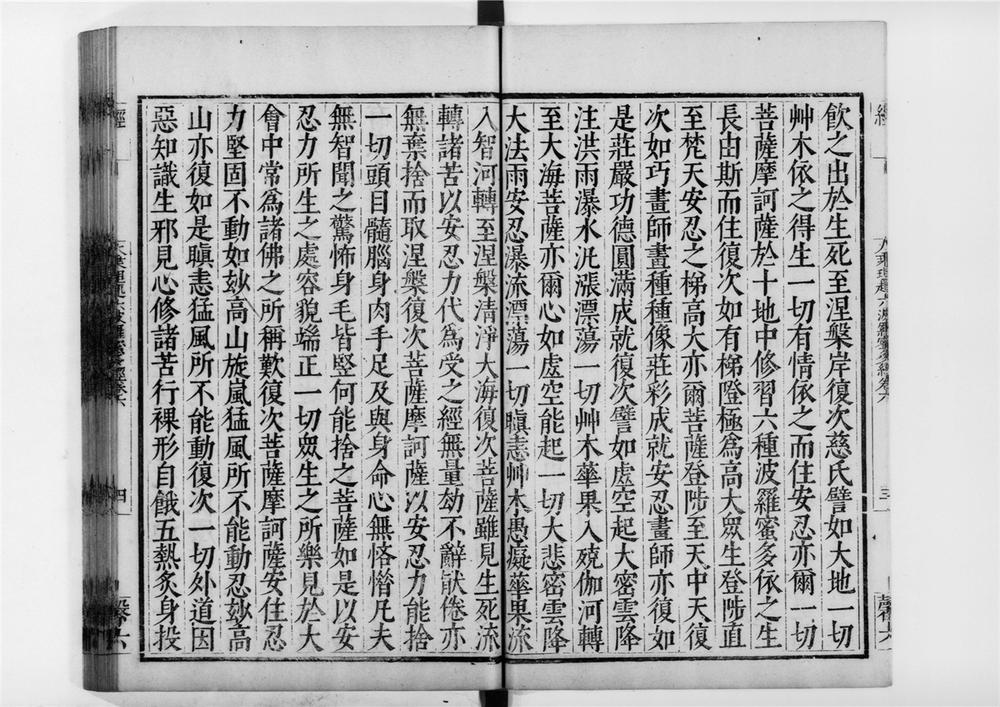 飲之出於生死至涅槃岸復次慈氏譬如大地一切
艸木依之得生一切有情依之而住安忍亦爾一切
菩薩摩訶薩於十地中修習六種波羅蜜多依之生
長由斯而住復次如有梯隥極爲高大眾生登陟直
至梵天安忍之梯高大亦爾菩薩登陟至天中天復
次如巧畫師畫種種像莊彩成就安忍畫師亦復如
是莊嚴功德圓滿成就復次譬如虛空起大密雲降
注洪雨瀑水汎漲漂蕩一切艸木華果入殑伽河轉
至大海菩薩亦爾心如虛空能起一切大悲密雲降
大法雨安忍瀑流漂蕩一切瞋恚艸木愚癡華果流
入智河轉至涅槃清淨大海復次菩薩雖見生死流
轉諸苦以安忍力代爲受之經無量劫不辭猒倦亦
無棄捨而取涅槃復次菩薩摩訶薩以安忍力能捨
一切頭目髓腦身肉手足及與身命心無悋惜凡夫
無智聞之驚怖身毛皆竪何能捨之菩薩如是以安
忍力所生之處容貌端正一切眾生之所樂見於大
會中常爲諸佛之所稱歎復次菩薩摩訶薩安住忍
力堅固不動如妙高山旋嵐猛風所不能動忍妙高
山亦復如是瞋恚猛風所不能動復次一切外道因
惡知識生邪見心修諸苦行裸形自餓五熱炙身投
經
三
四